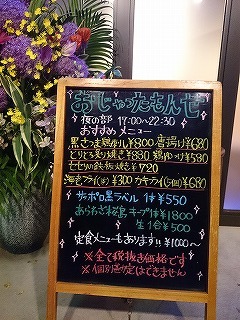 おじゃったもんせ
夜の部 17:00〜22:30
おすすめメニュー
黒さつま鶏 ¥800 唐揚げ ¥680
とりとろ炙り焼き ¥830 鶏ゆっけ ¥580
せせりの鉄板焼き ¥720
海老フライ(本) ¥300 カキフライ(5個) ¥680
サッポロ黒ラベル 1本 ¥550
あらわざ桜島 キープ1本 ¥1800
生1合 ¥500
定食メニューもあります!! ¥1000〜
※全て税抜き価格です
※個別勘定はできません